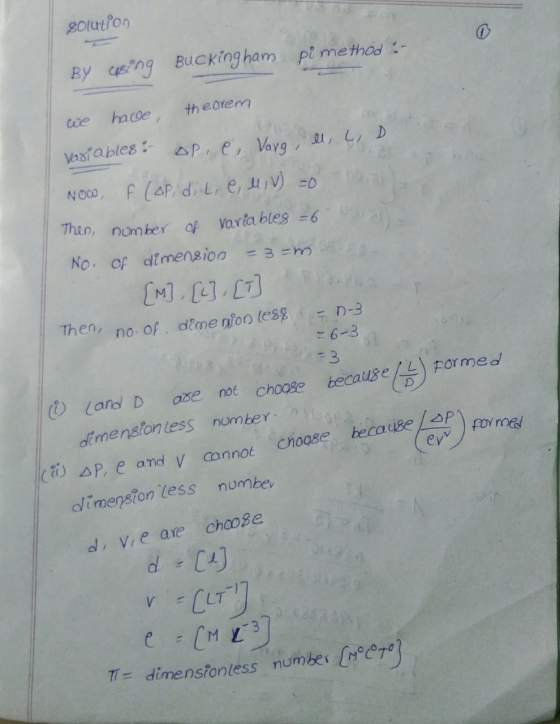 solution
①
By using Buckingham pi method :-
we have, theorem
Variables :- ΔP, e, Vavg, μ, L, D
Now, F (ΔP, d, L, e, μ, V) = 0
Then, number of variables = 6
No. of dimension = 3 = m
[M], [L], [T]
Then, no. of dimenionless = n-3
= 6-3
= 3
(i) L and D are not choose because (L/D) Formed
dimensionless number.
(ii) ΔP, e and V cannot choose because (ΔP/eV²) formed
dimensionless number
d, V, e are choose
d = [L]
v = [LT⁻¹]
e = [M L⁻³]
π = dimensionless number [M⁰L⁰T⁰]